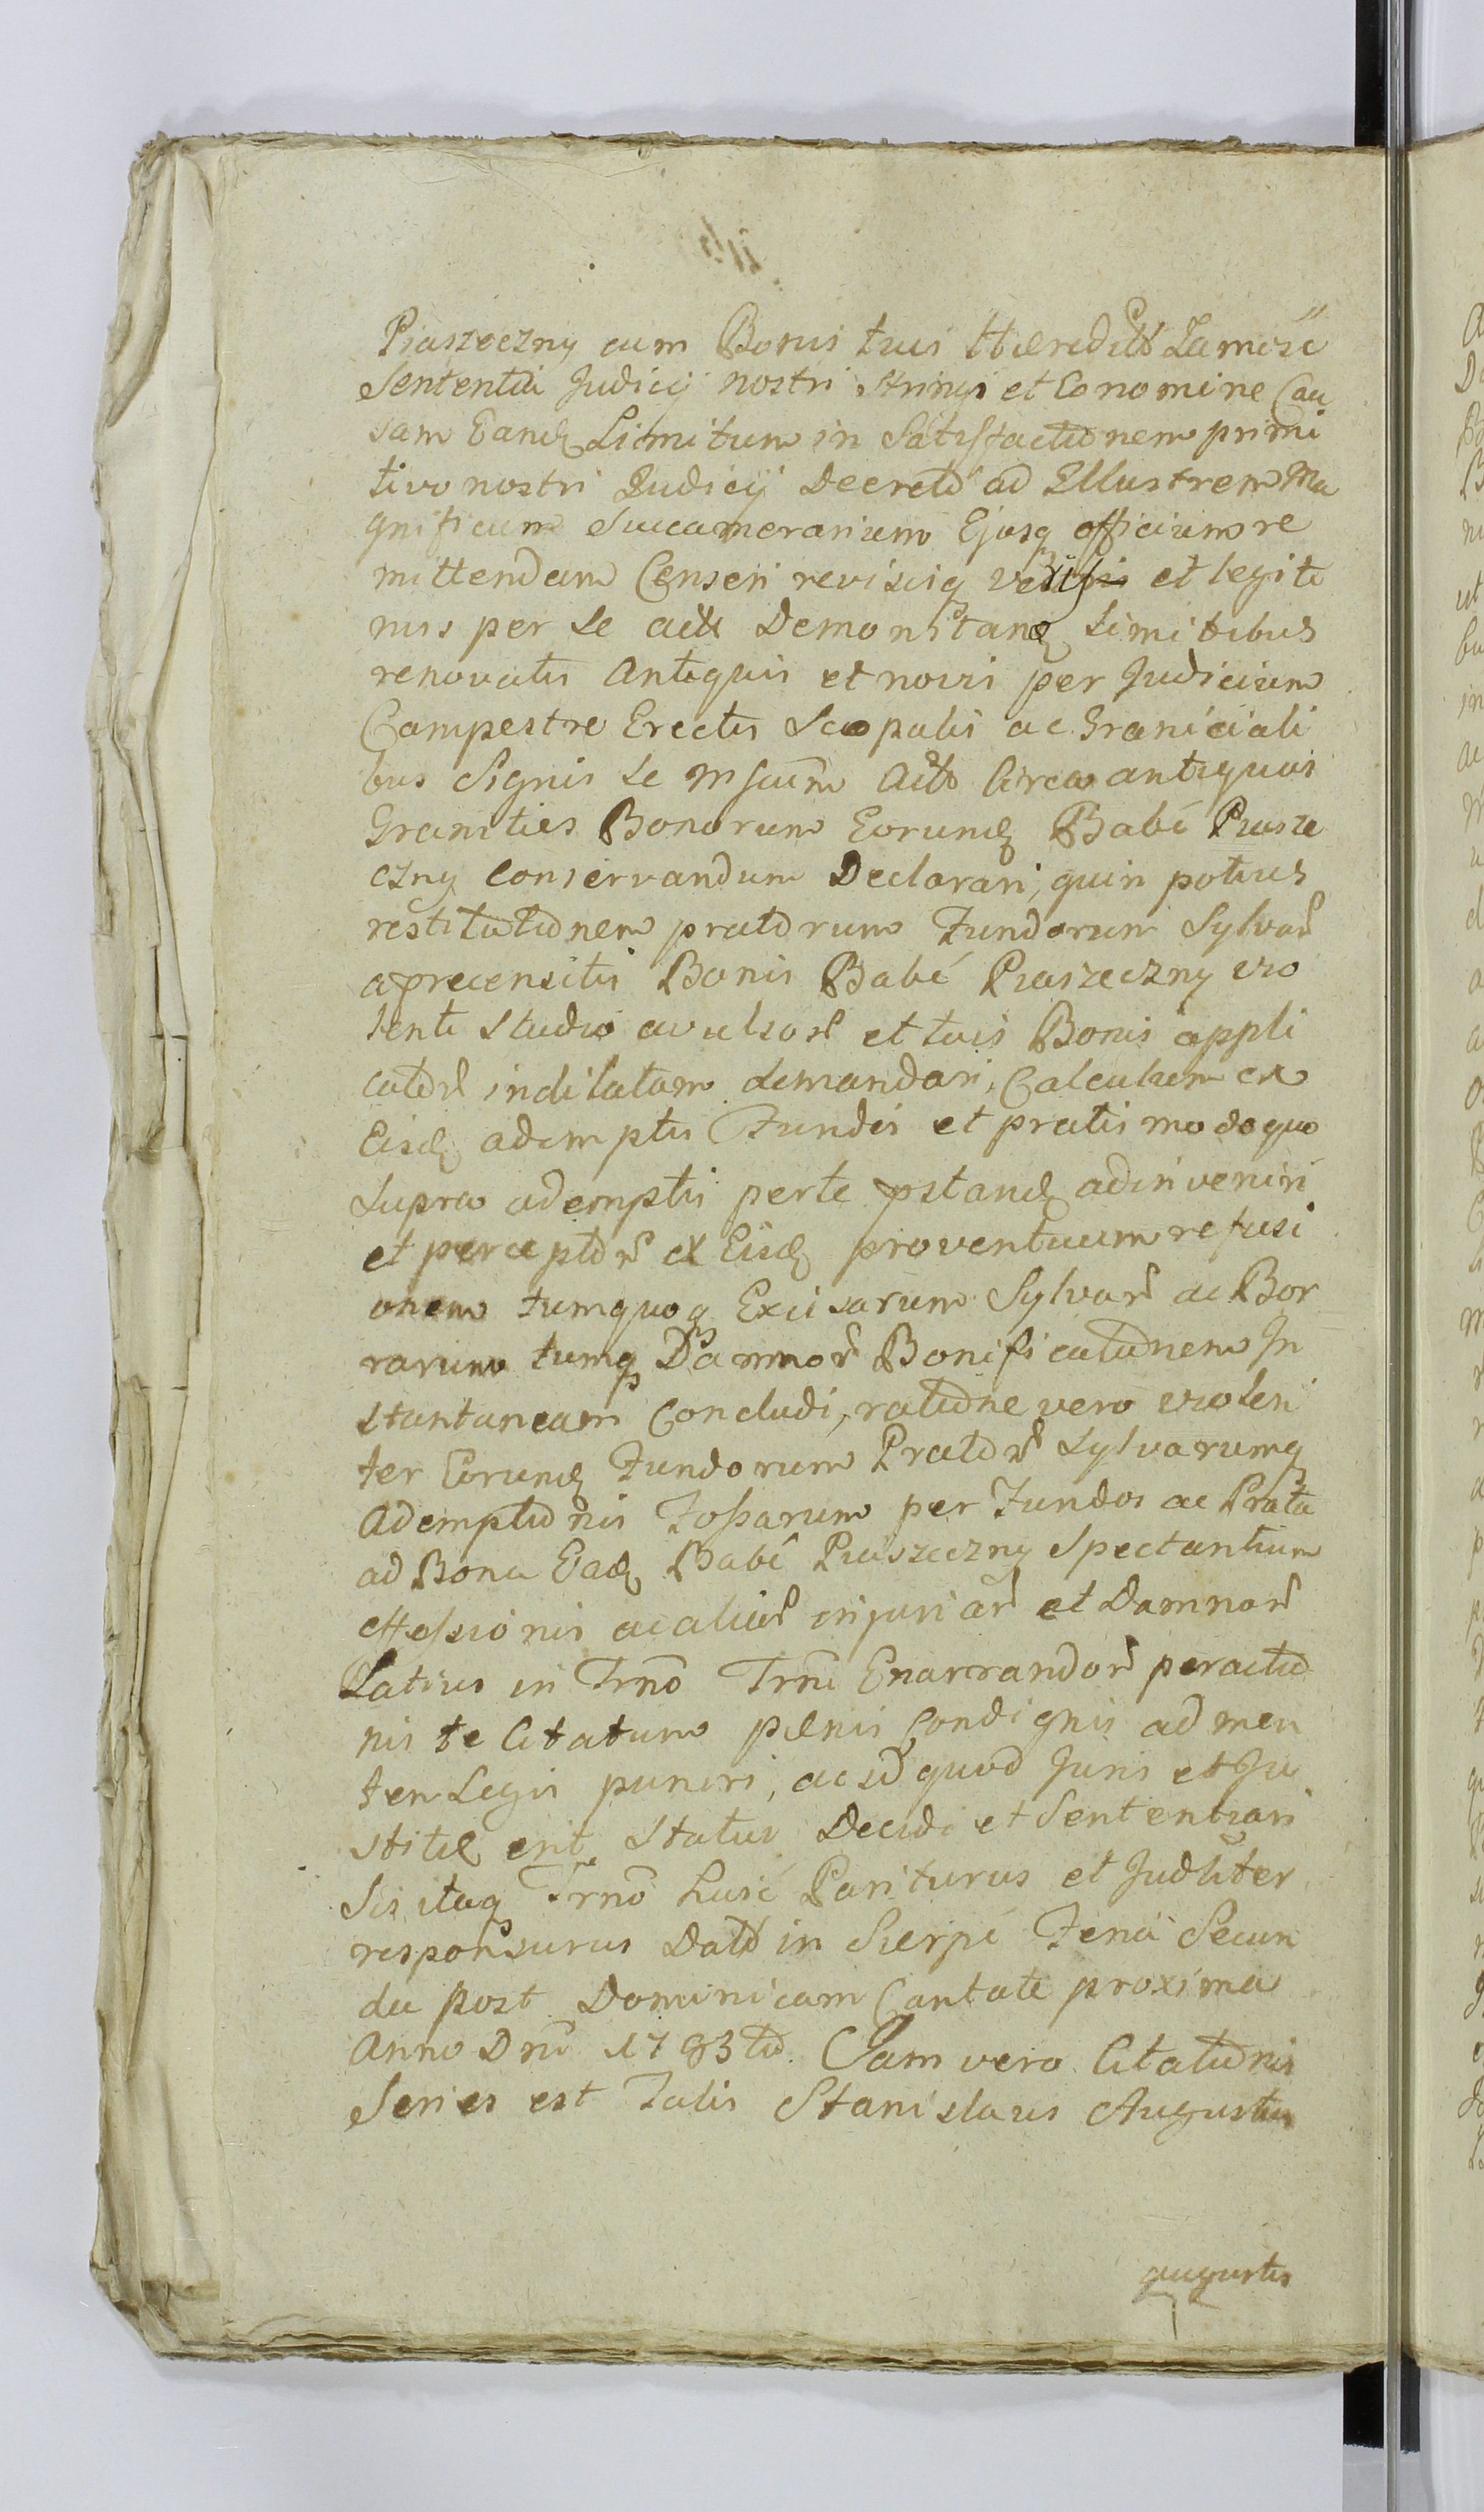 Piaszeczny cum Bonis tuis Hæreditt Zamość
Sententia Judicij nostri stringi et Eo nomine Cau
sam Eand Limitum in Satisfactionem primi
tivo nostri Judicij Decreto ad Illustrem Ma
gnificum Succamerarium Ejusq officium re
mittendam Censeri revisisq et legiti
mis per se Demonstrand Limitibus
renovatis Antiquis et novis per Judicium
Campestre Erectis Scopulis ac Graniciali
bus Signis se Actt circa antiquas
Granities Bonorum Eorumd Babć Piasze
czny conservandum Declarari, quin potius
restitutionem pratorum Fundorum Sylvar
a precensitis Bonis Babć Piaszeczny vio
lenti studio avulsor et tuis Bonis appli
cator indilatam demandari, Calculum ex
Eisd ademptis Fundis et pratis modo quo
supra ademptis per te pstand adinveniri
et perceptor ex Eisd proventuum refusi
onem tumquoq Excisarum Sylvar ac Bor
rarum tumq Damnor Bonificationem In
stantaneam Concludi, ratione vero violen
ter Eorumd Fundorum Prator Sylvarumq
Ademptionis Fossarum per Fundos ac Prata
ad Bona Ead Babć Piaszeczny Spectantium
effossionis ac aliar injuriar et Damnor
Latius in Trnō Trnī Enarrandor peractio
nis te Citatum pænis Condignis ad men
tem Legis puniri, ac id quod Juris et Ju
stitiæ erit Statui Decidi et Sententiari
Sis itaq Trnō huic Pariturus et Judliter
responsurus Datt in Sierpć Feria Secun
da post Dominicam Cantate proxima
Anno Dnī 1783tio. Jam vero Citationis
Series est Talis Stanislaus Augustus
augustus